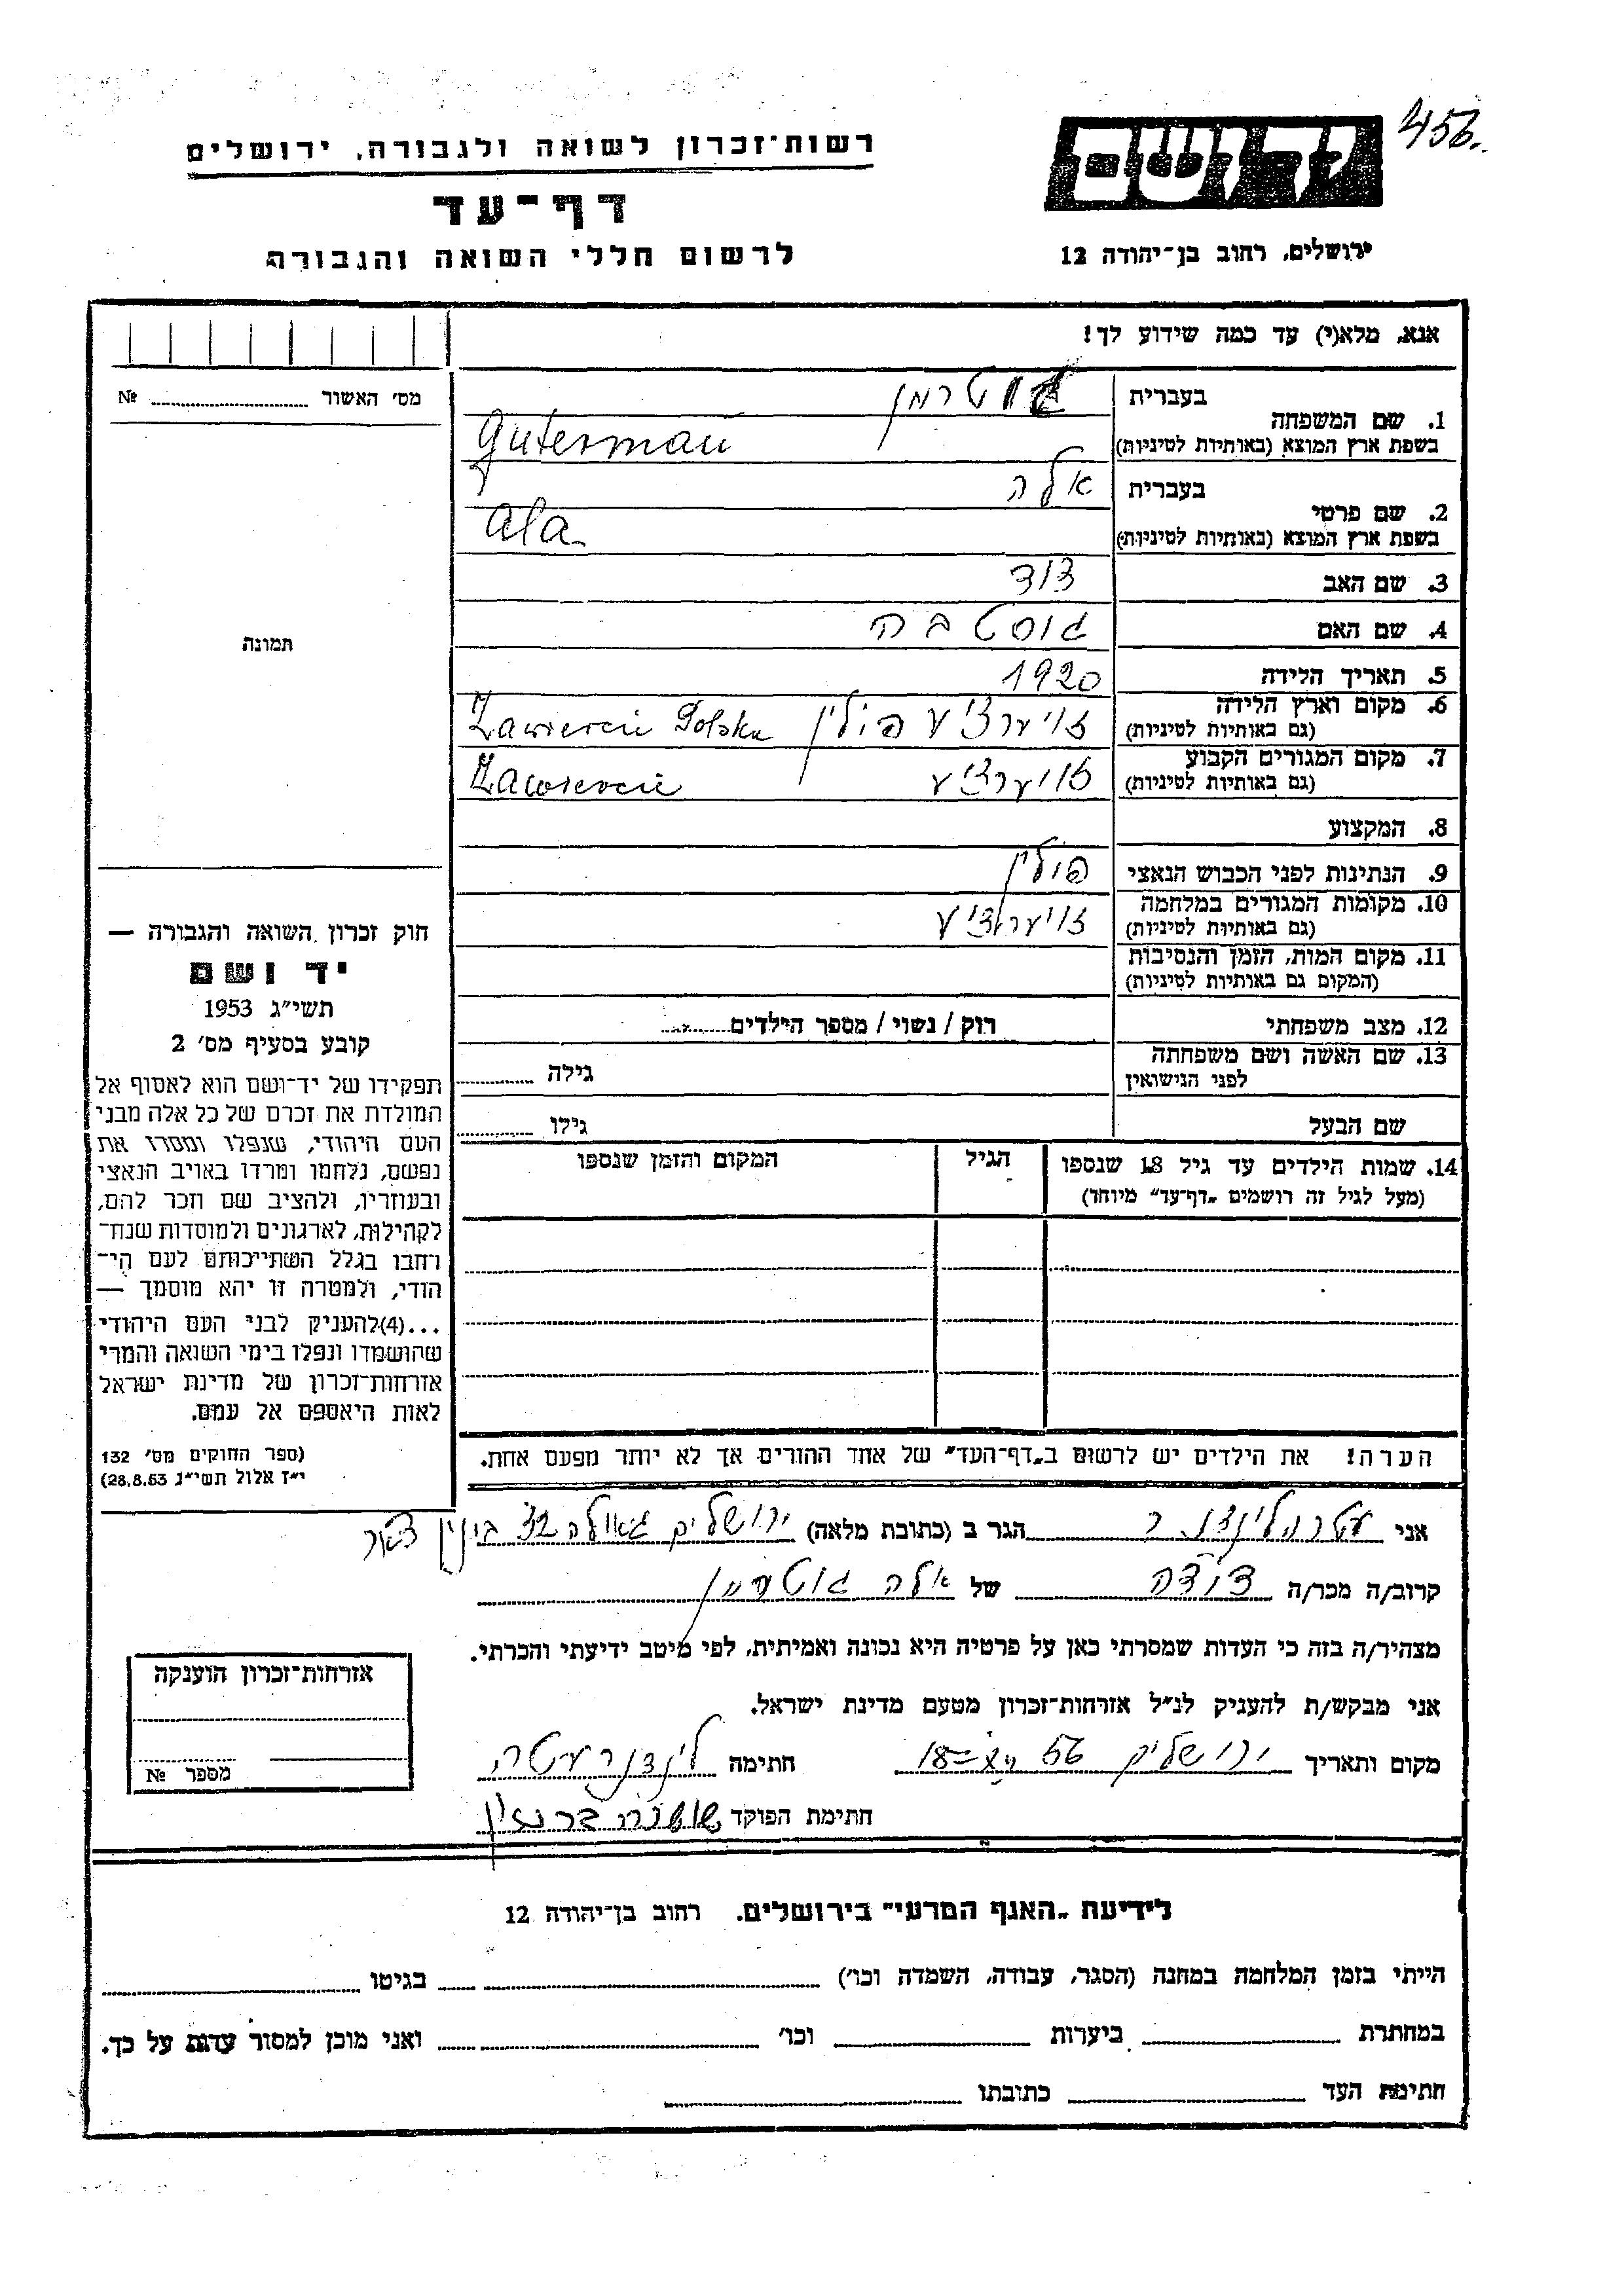 456
יד ושם
רשות-זכרון לשואה ולגבורה, ירושלים
דף-עד
לרשום חללי השואה והגבורה
ירושלים, רחוב בן-יהודה 12
אנא, מלא(י) עד כמה שידוע לך!
מס' האשור № ............
תמונה
1. שם המשפחה
בעברית גוטרמן
בשפת ארץ המוצא (באותיות לטיניות) Guterman
2. שם פרטי
בעברית אלה
בשפת ארץ המוצא (באותיות לטיניות) Ala
3. שם האב דוד
4. שם האם גוסטבה
5. תאריך הלידה 1920
6. מקום וארץ הלידה זויערציע פולין Zawiercie Polska
(גם באותיות לטיניות)
7. מקום המגורים הקבוע זויערציע Zawiercie
(גם באותיות לטיניות)
8. המקצוע
9. הנתינות לפני הכבוש הנאצי פולין
10. מקומות המגורים במלחמה זויערציע
(גם באותיות לטיניות)
11. מקום המות, הזמן והנסיבות
(המקום גם באותיות לטיניות)
12. מצב משפחתי רוק / נשוי / מספר הילדים............
13. שם האשה ושם משפחתה גילה ............
לפני הנישואין
שם הבעל גילו ............
14. שמות הילדים עד גיל 18 שנספו הגיל המקום והזמן שנספו
(מעל לגיל זה רושמים "דף-עד" מיוחד)
חוק זכרון השואה והגבורה —
יד ושם
תשי"ג 1953
קובע בסעיף מס' 2
תפקידו של יד-ושם הוא לאסוף אל
המולדת את זכרם של כל אלה מבני
העם היהודי, שנפלו ומסרו את
נפשם, נלחמו ומרדו באויב הנאצי
ובעוזריו, ולהציב שם וזכר להם,
לקהילות, לארגונים ולמוסדות שנח-
רחבו בגלל השתייכותם לעם הי-
הודי, ולמטרה זו יהא מוסמך —
...(4)להעניק לבני העם היהודי
שהושמדו ונפלו בימי השואה והמרי
אזרחות-זכרון של מדינת ישראל
לאות היאספם אל עמם.
(ספר החוקים מס' 132
י"ז אלול תשי"ג 28.8.53)
הערה! את הילדים יש לרשום ב"דף-העד" של אחד ההורים אך לא יותר מפעם אחת.
אני עטה לינדנר הגר ב (כתובת מלאה) ירושלים גאולה 32 בינין
קרוב/ה מכר/ה דודה של אלה גוטרמן
מצהיר/ה בזה כי העדות שמסרתי כאן על פרטיה היא נכונה ואמיתית, לפי מיטב ידיעתי והכרתי.
אני מבקש/ת להעניק לנ"ל אזרחות-זכרון מטעם מדינת ישראל.
מקום ותאריך ירושלים 56 18 חתימה לינדנר עטה
חתימת הפוקד שושנה
אזרחות-זכרון הוענקה
מספר №
לידיעת "האגף המדעי" בירושלים. רחוב בן-יהודה 12
הייתי בזמן המלחמה במחנה (הסגר, עבודה, השמדה וכו') ............ בגיטו ............
במחתרת ............ ביערות ............ וכו' ............ ואני מוכן למסור עדות על כך.
חתימת העד ............ כתובתו ............